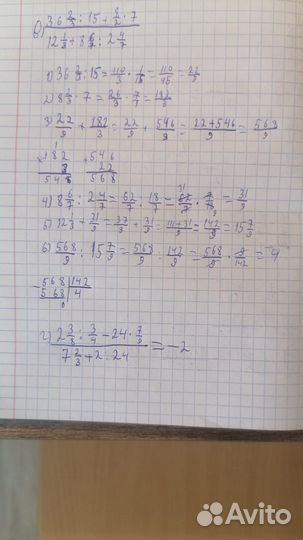 в) 36 2/3 : 15 + 8 2/3 · 7
12 1/3 + 8 6/7 : 2 4/7
1) 36 2/3 : 15 = 110/3 · 1/15 = 110/45 = 22/9
2) 8 2/3 · 7 = 26/3 · 7/1 = 182/3
3) 22/9 + 182/3 = 22/9 + 546/9 = 22+546/9 = 568/9
182 546
3 22
546 568
4) 8 6/7 : 2 4/7 = 62/7 : 18/7 = 62/7 · 7/18 = 31/9
5) 12 1/3 + 31/9 = 37/3 + 31/9 = 111+31/9 = 142/9 = 15 7/9
6) 568/9 : 15 7/9 = 568/9 : 142/9 = 568/9 · 9/142 = 4
568 142
568 4
0
г) 2 3/8 : 3/4 - 24 · 7/9
7 2/3 + 2 : 24 = -2
Avito